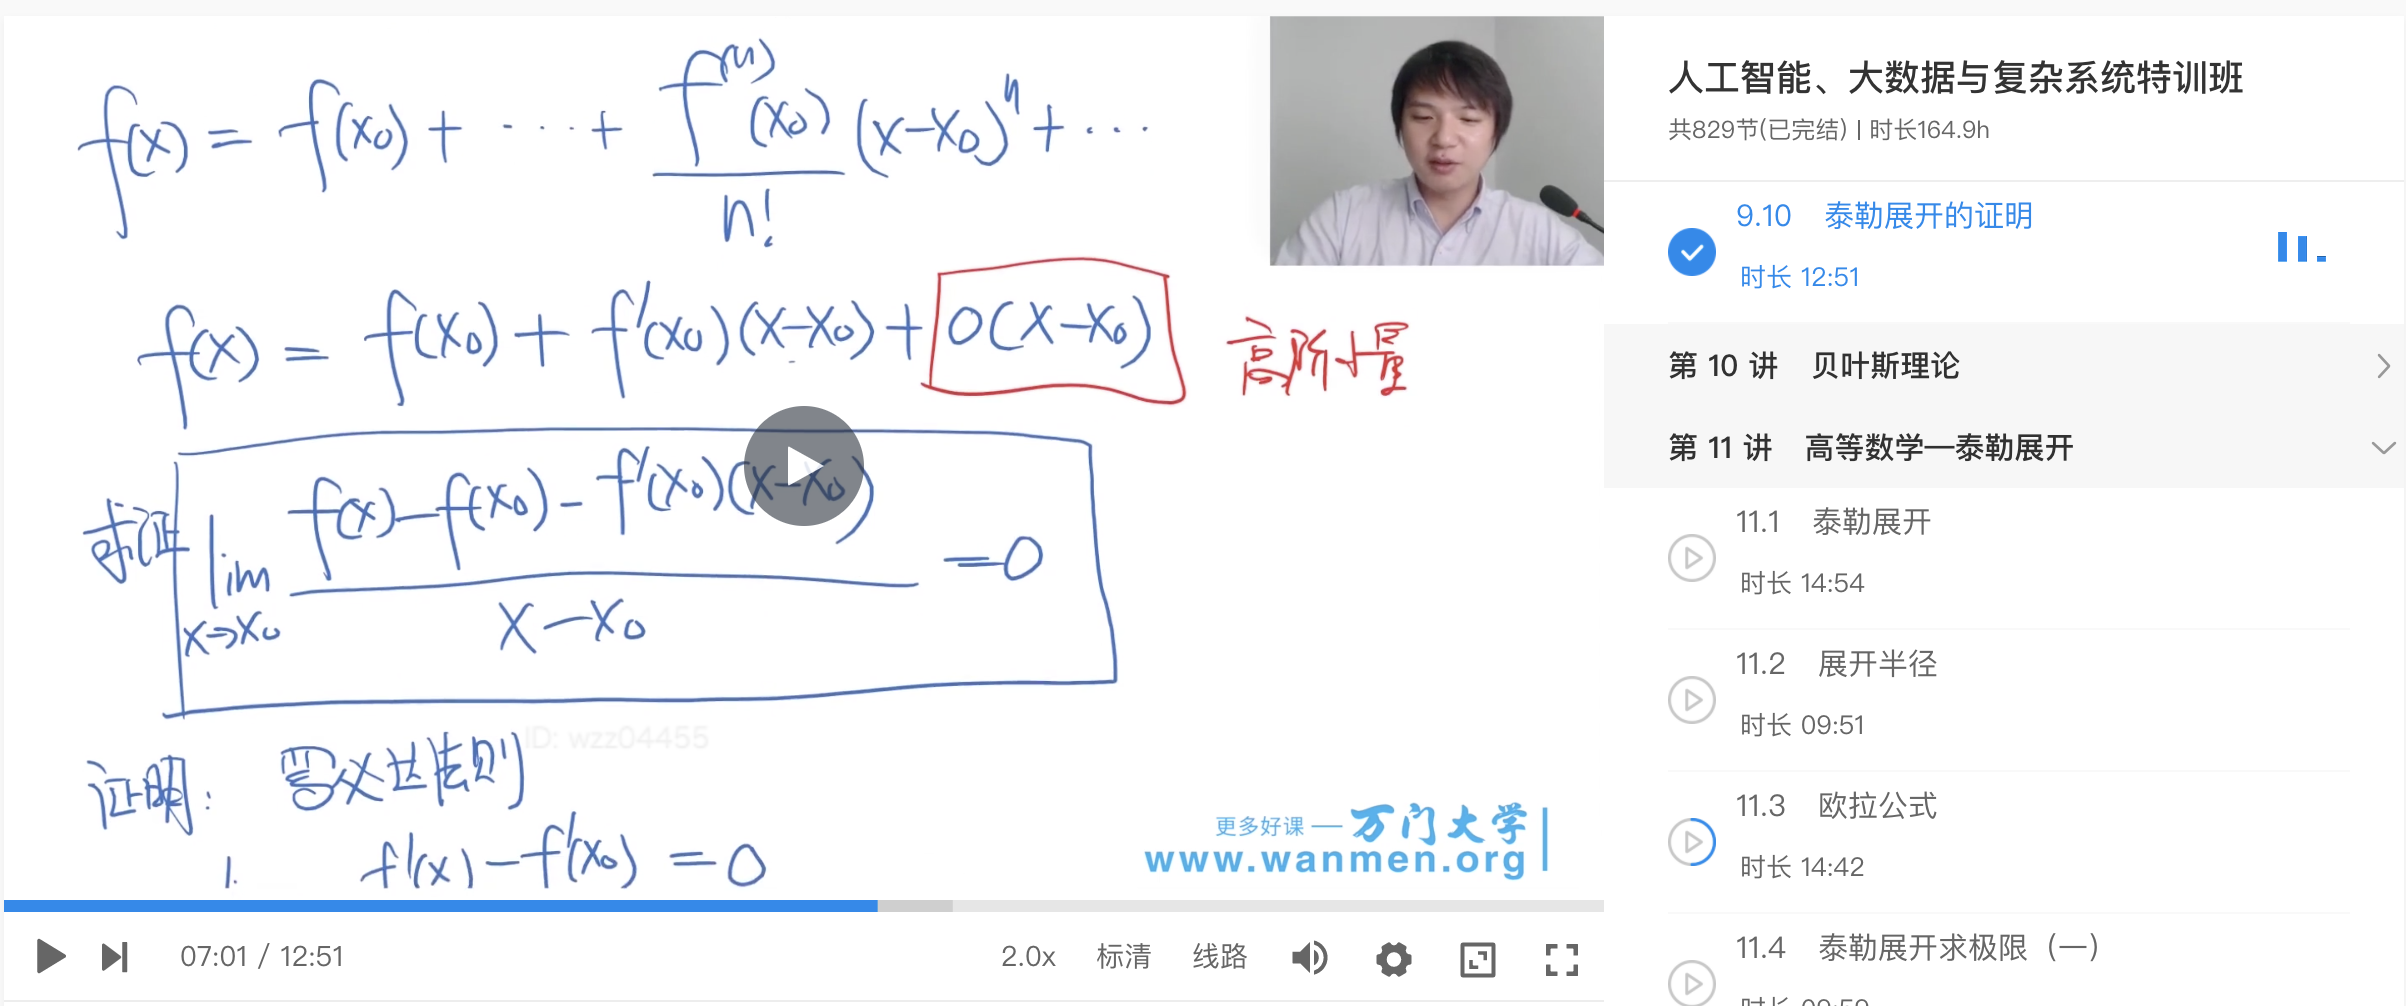 f(x) = f(x₀) + ··· + f⁽ⁿ⁾(x₀)/n! (x-x₀)ⁿ + ···
f(x) = f(x₀) + f'(x₀)(x-x₀) + o(x-x₀) 高阶小量
求证 lim x→x₀ f(x)-f(x₀)-f'(x₀)(x-x₀) / x-x₀ =0
ID: wzz04455
证明: 洛必达法则
1. f'(x) - f'(x₀) = 0
更多好课 — 万门大学
www.wanmen.org
07:01 / 12:51
2.0x 标清 线路
人工智能、大数据与复杂系统特训班
共829节(已完结) | 时长164.9h
9.10 泰勒展开的证明
时长 12:51
第 10 讲 贝叶斯理论
第 11 讲 高等数学—泰勒展开
11.1 泰勒展开
时长 14:54
11.2 展开半径
时长 09:51
11.3 欧拉公式
时长 14:42
11.4 泰勒展开求极限（一）